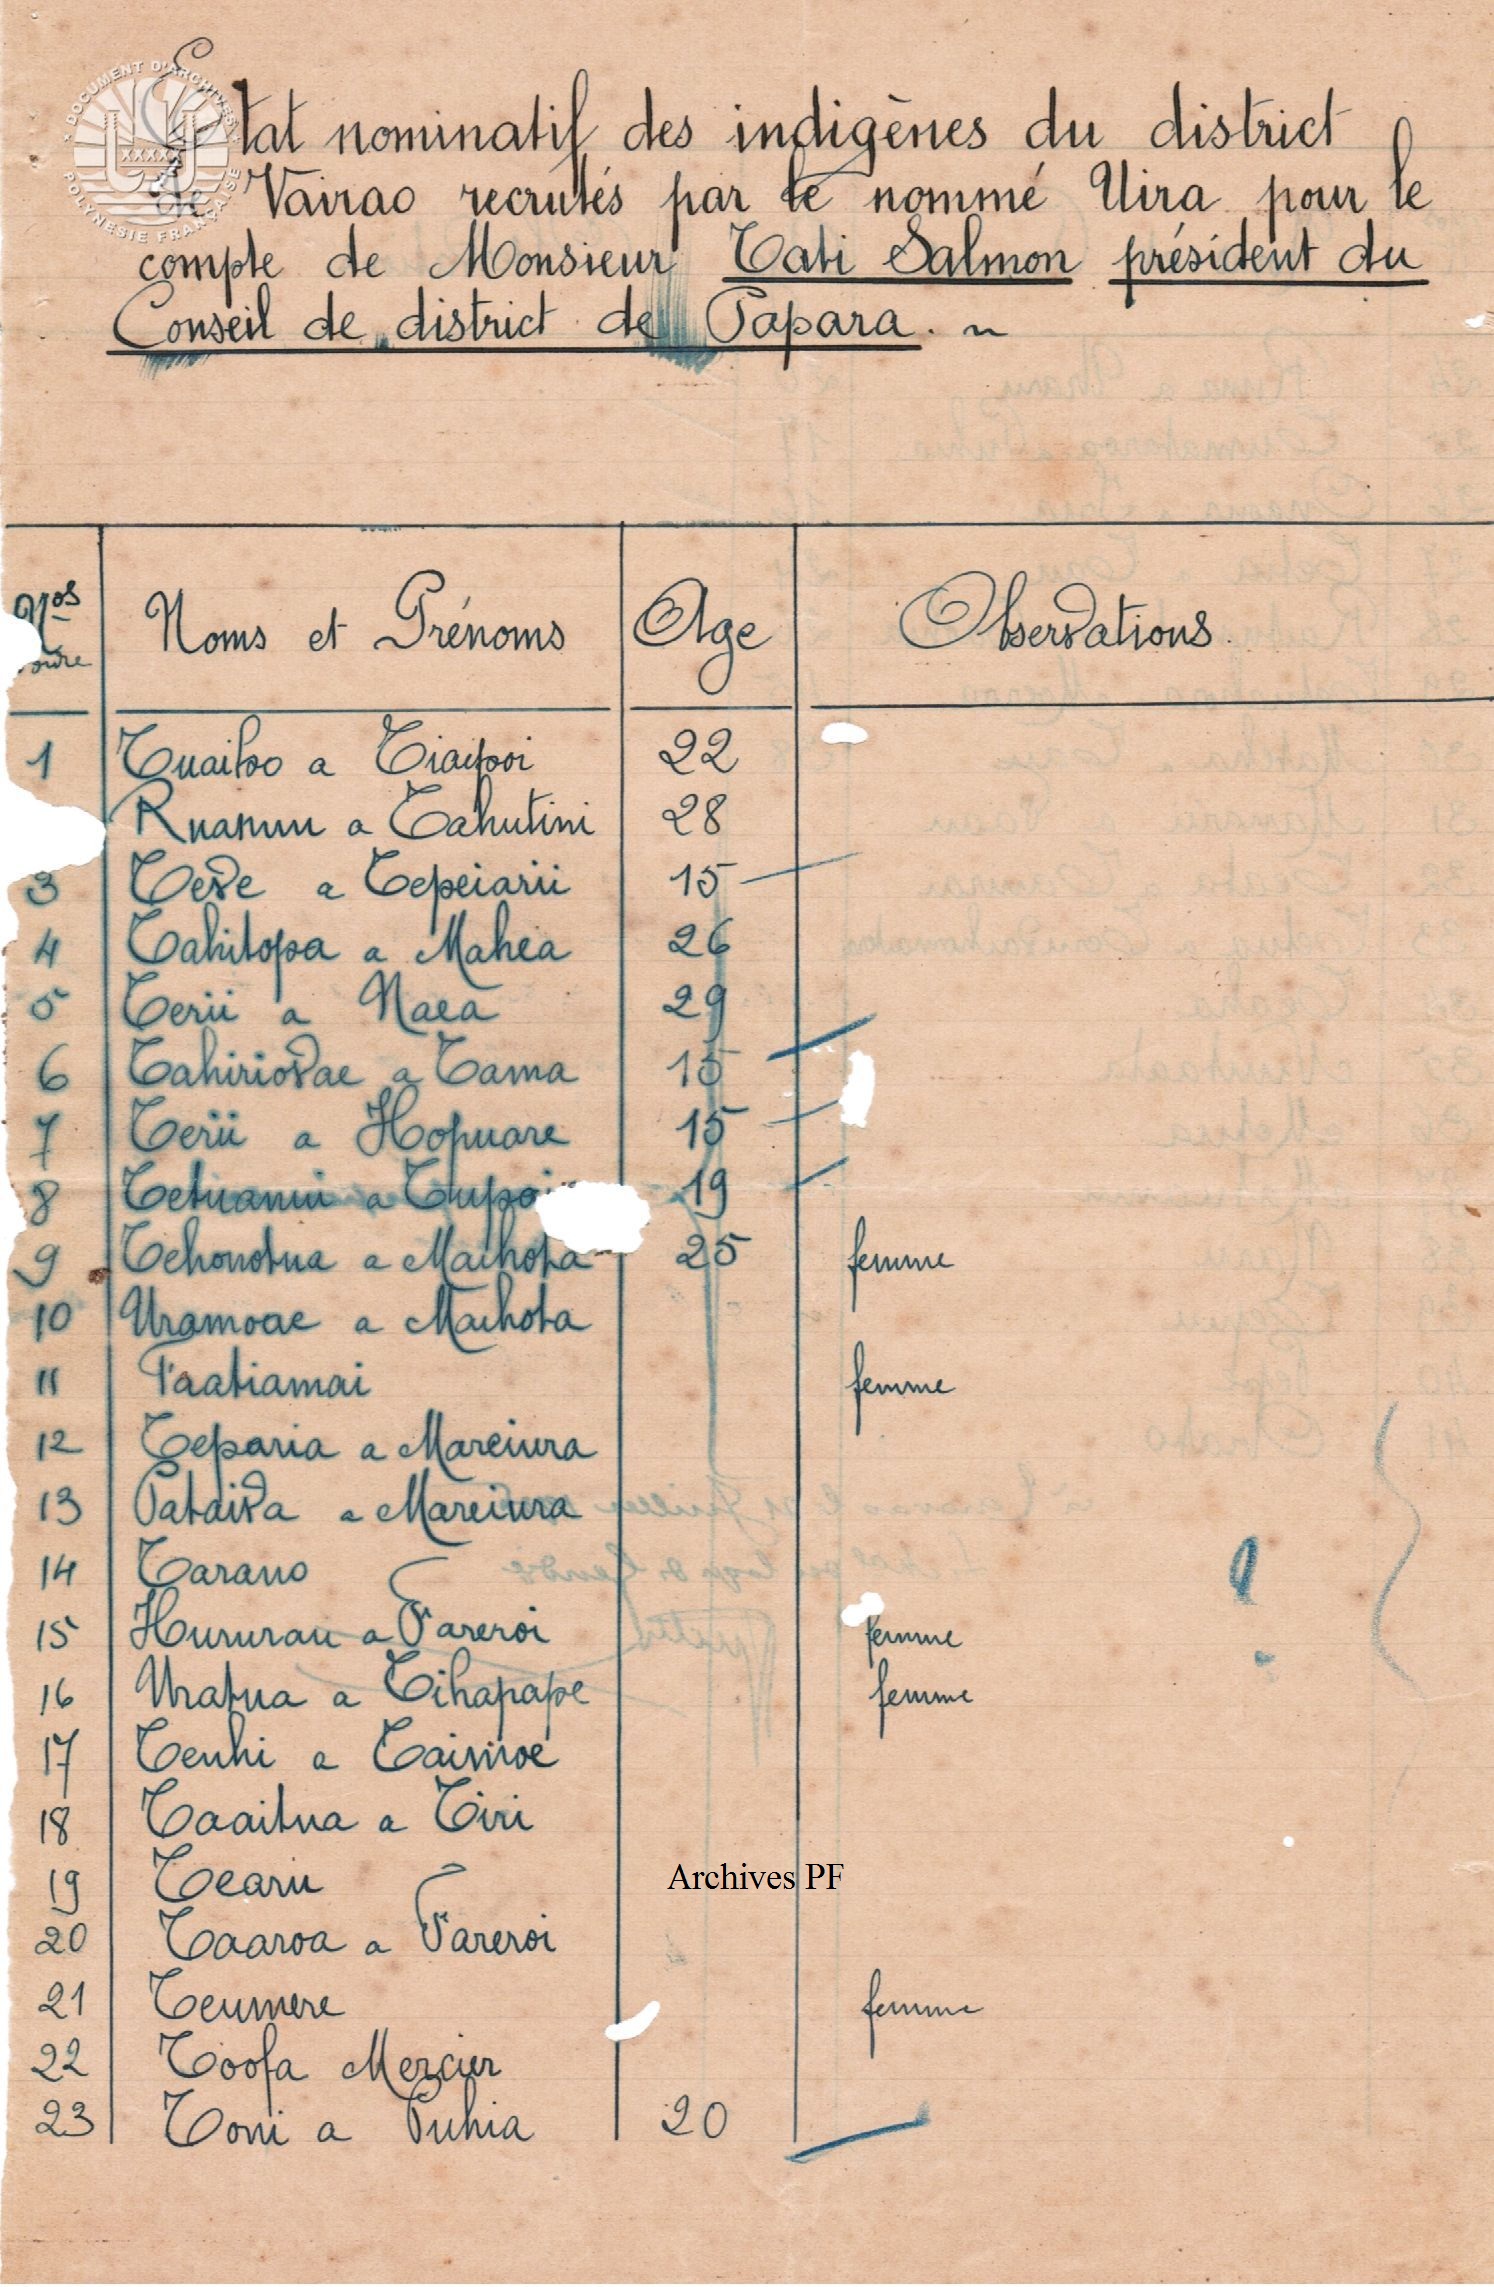 DOCUMENT D'ARCHIVES
POLYNESIE FRANÇAISE
Etat nominatif des indigènes du district
de Vairao recrutés par le nommé Uira pour le
compte de Monsieur Tati Salmon président du
Conseil de district de Papara.
Nos Noms et Prénoms Age Observations
1 Tuaihoo a Tiaipoi 22
Ruanuu a Tahutini 28
3 Teve a Tepeiarii 15
4 Tahitopa a Mahea 26
5 Terii a Naea 29
6 Tahiriovae a Tama 15
7 Terii a Hopuare 15
8 Tetuanui a 19
9 Tehonotua a Maihota 25 femme
10 Uramoae a Maihota
11 Faatiamai femme
12 Teparia a Mareiura
13 Pataiva a Mareiura
14 Tarano
15 Hururau a Fareroi femme
16 Uratua a Tihapape femme
17 Teuhi a Taimoe
18 Taaitua a Tiri
19 Tearii
20 Taaroa a Fareroi
21 Teumere femme
22 Toofa Mercier
23 Toni a Puhia 20
Archives PF